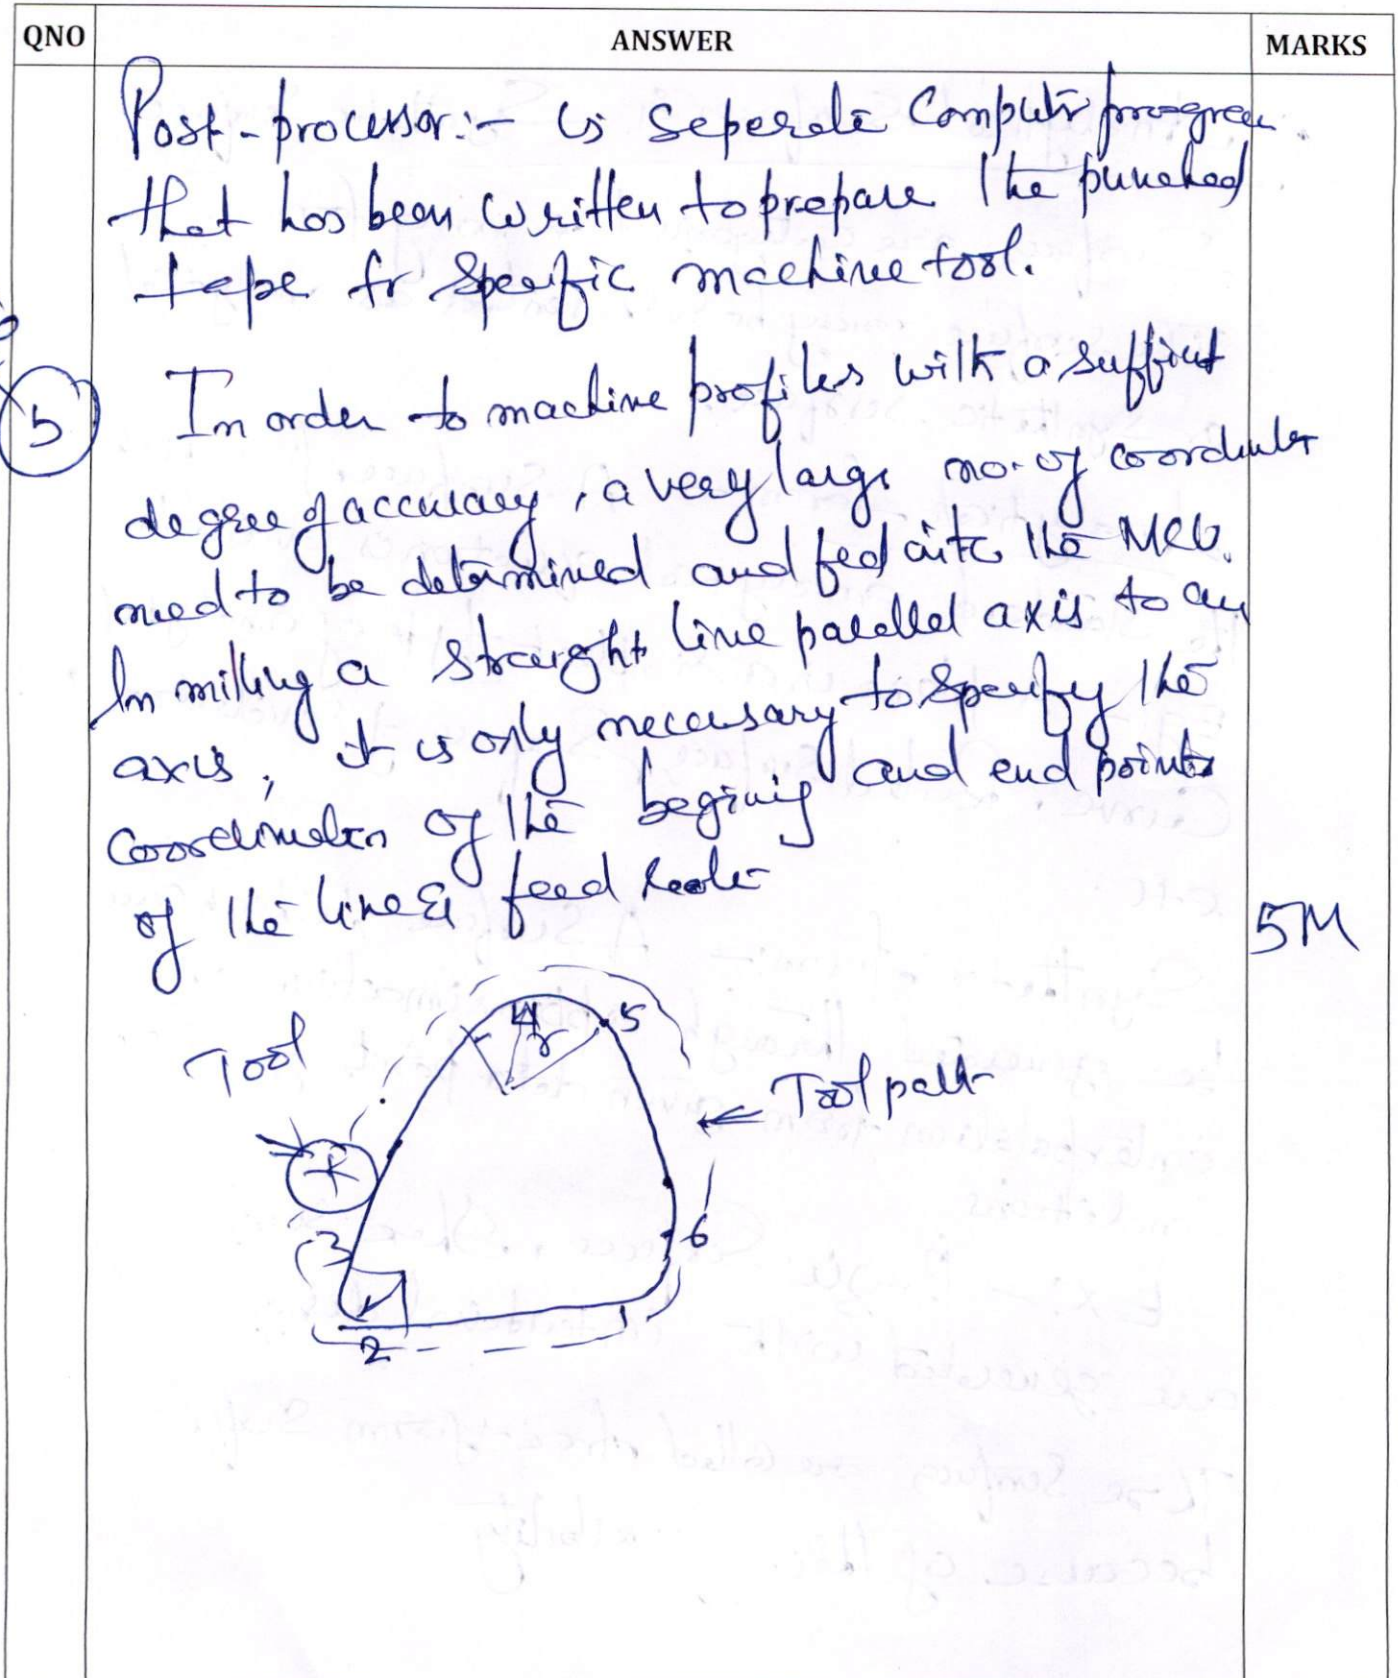 QNO ANSWER MARKS
Post-processor:- is Seperate Computer program
that has been written to prepare the punched
tape fr Specific machine tool.
5 In order to machine profiles with a suffient
degree of accuracy, a very large no. of coordinates
need to be determined and fed into the MCU.
In milling a straight line parallel axis to an
axis, it is only necessary to specify the
Coordinates of the begining and end points
of the line & feed rate
5M
Tool
4 r 5
Tool path
3
6
2